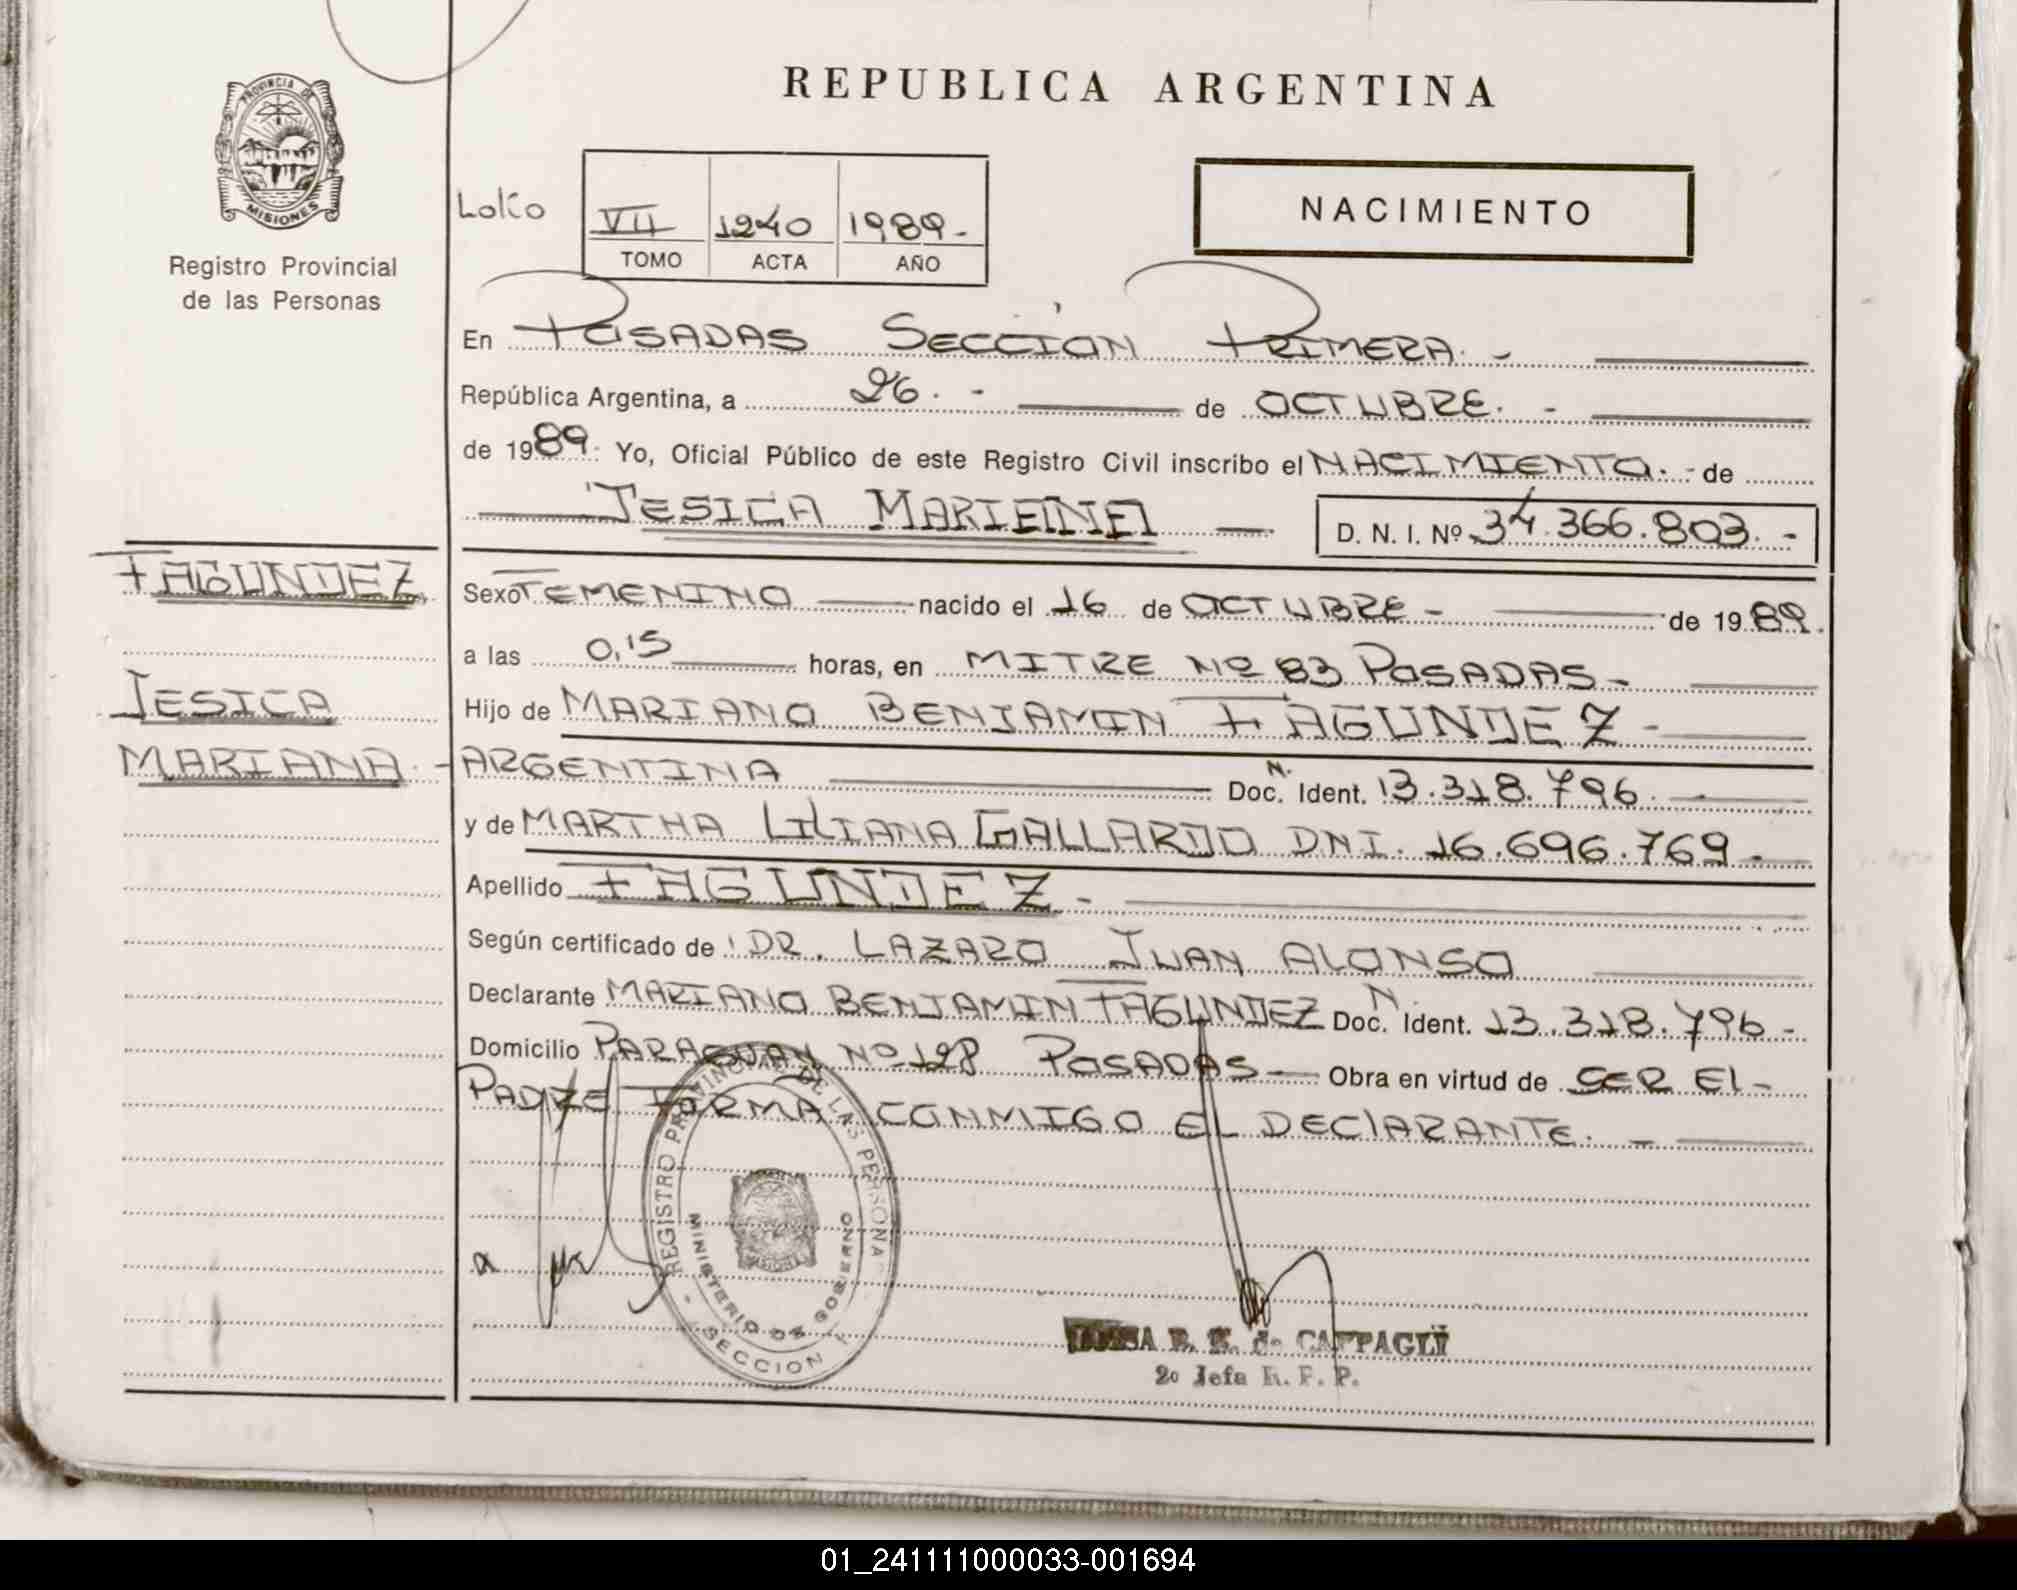 PROVINCIA DE
MISIONES
Registro Provincial
de las Personas
REPUBLICA ARGENTINA
VII 1240 1989.-
TOMO ACTA AÑO
NACIMIENTO
En POSADAS SECCION PRIMERA.-
República Argentina, a 26.- de OCTUBRE.-
de 1989. Yo, Oficial Público de este Registro Civil inscribo el NACIMIENTO.- de
JESICA MARIANA
D. N. I. Nº 34.366.803.-
FAGUNDEZ
JESICA
MARIANA.-
Sexo FEMENINO nacido el 16 de OCTUBRE- de 1989.
a las 0,15 horas, en MITRE Nº 83 POSADAS-
Hijo de MARIANO BENJAMIN FAGUNDEZ-
ARGENTINA Doc. N. Ident. 13.318.796.
y de MARTHA LILIANA GALLARDO DNI. 16.696.769.-
Apellido FAGUNDEZ-
Según certificado de DR. LAZARO JUAN ALONSO
Declarante MARIANO BENJAMIN FAGUNDEZ Doc. N. Ident. 13.318.796-
Domicilio PARAGUAY Nº 128 POSADAS- Obra en virtud de SER El-
PADRE FIRMA CONMIGO EL DEClARANTE.-
REGISTRO PROVINCIAL DE LAS PERSONAS
MINISTERIO DE GOBIERNO
SECCION 1
de CAPPAGLI
2º Jefa R. P. P.
01_241111000033-001694